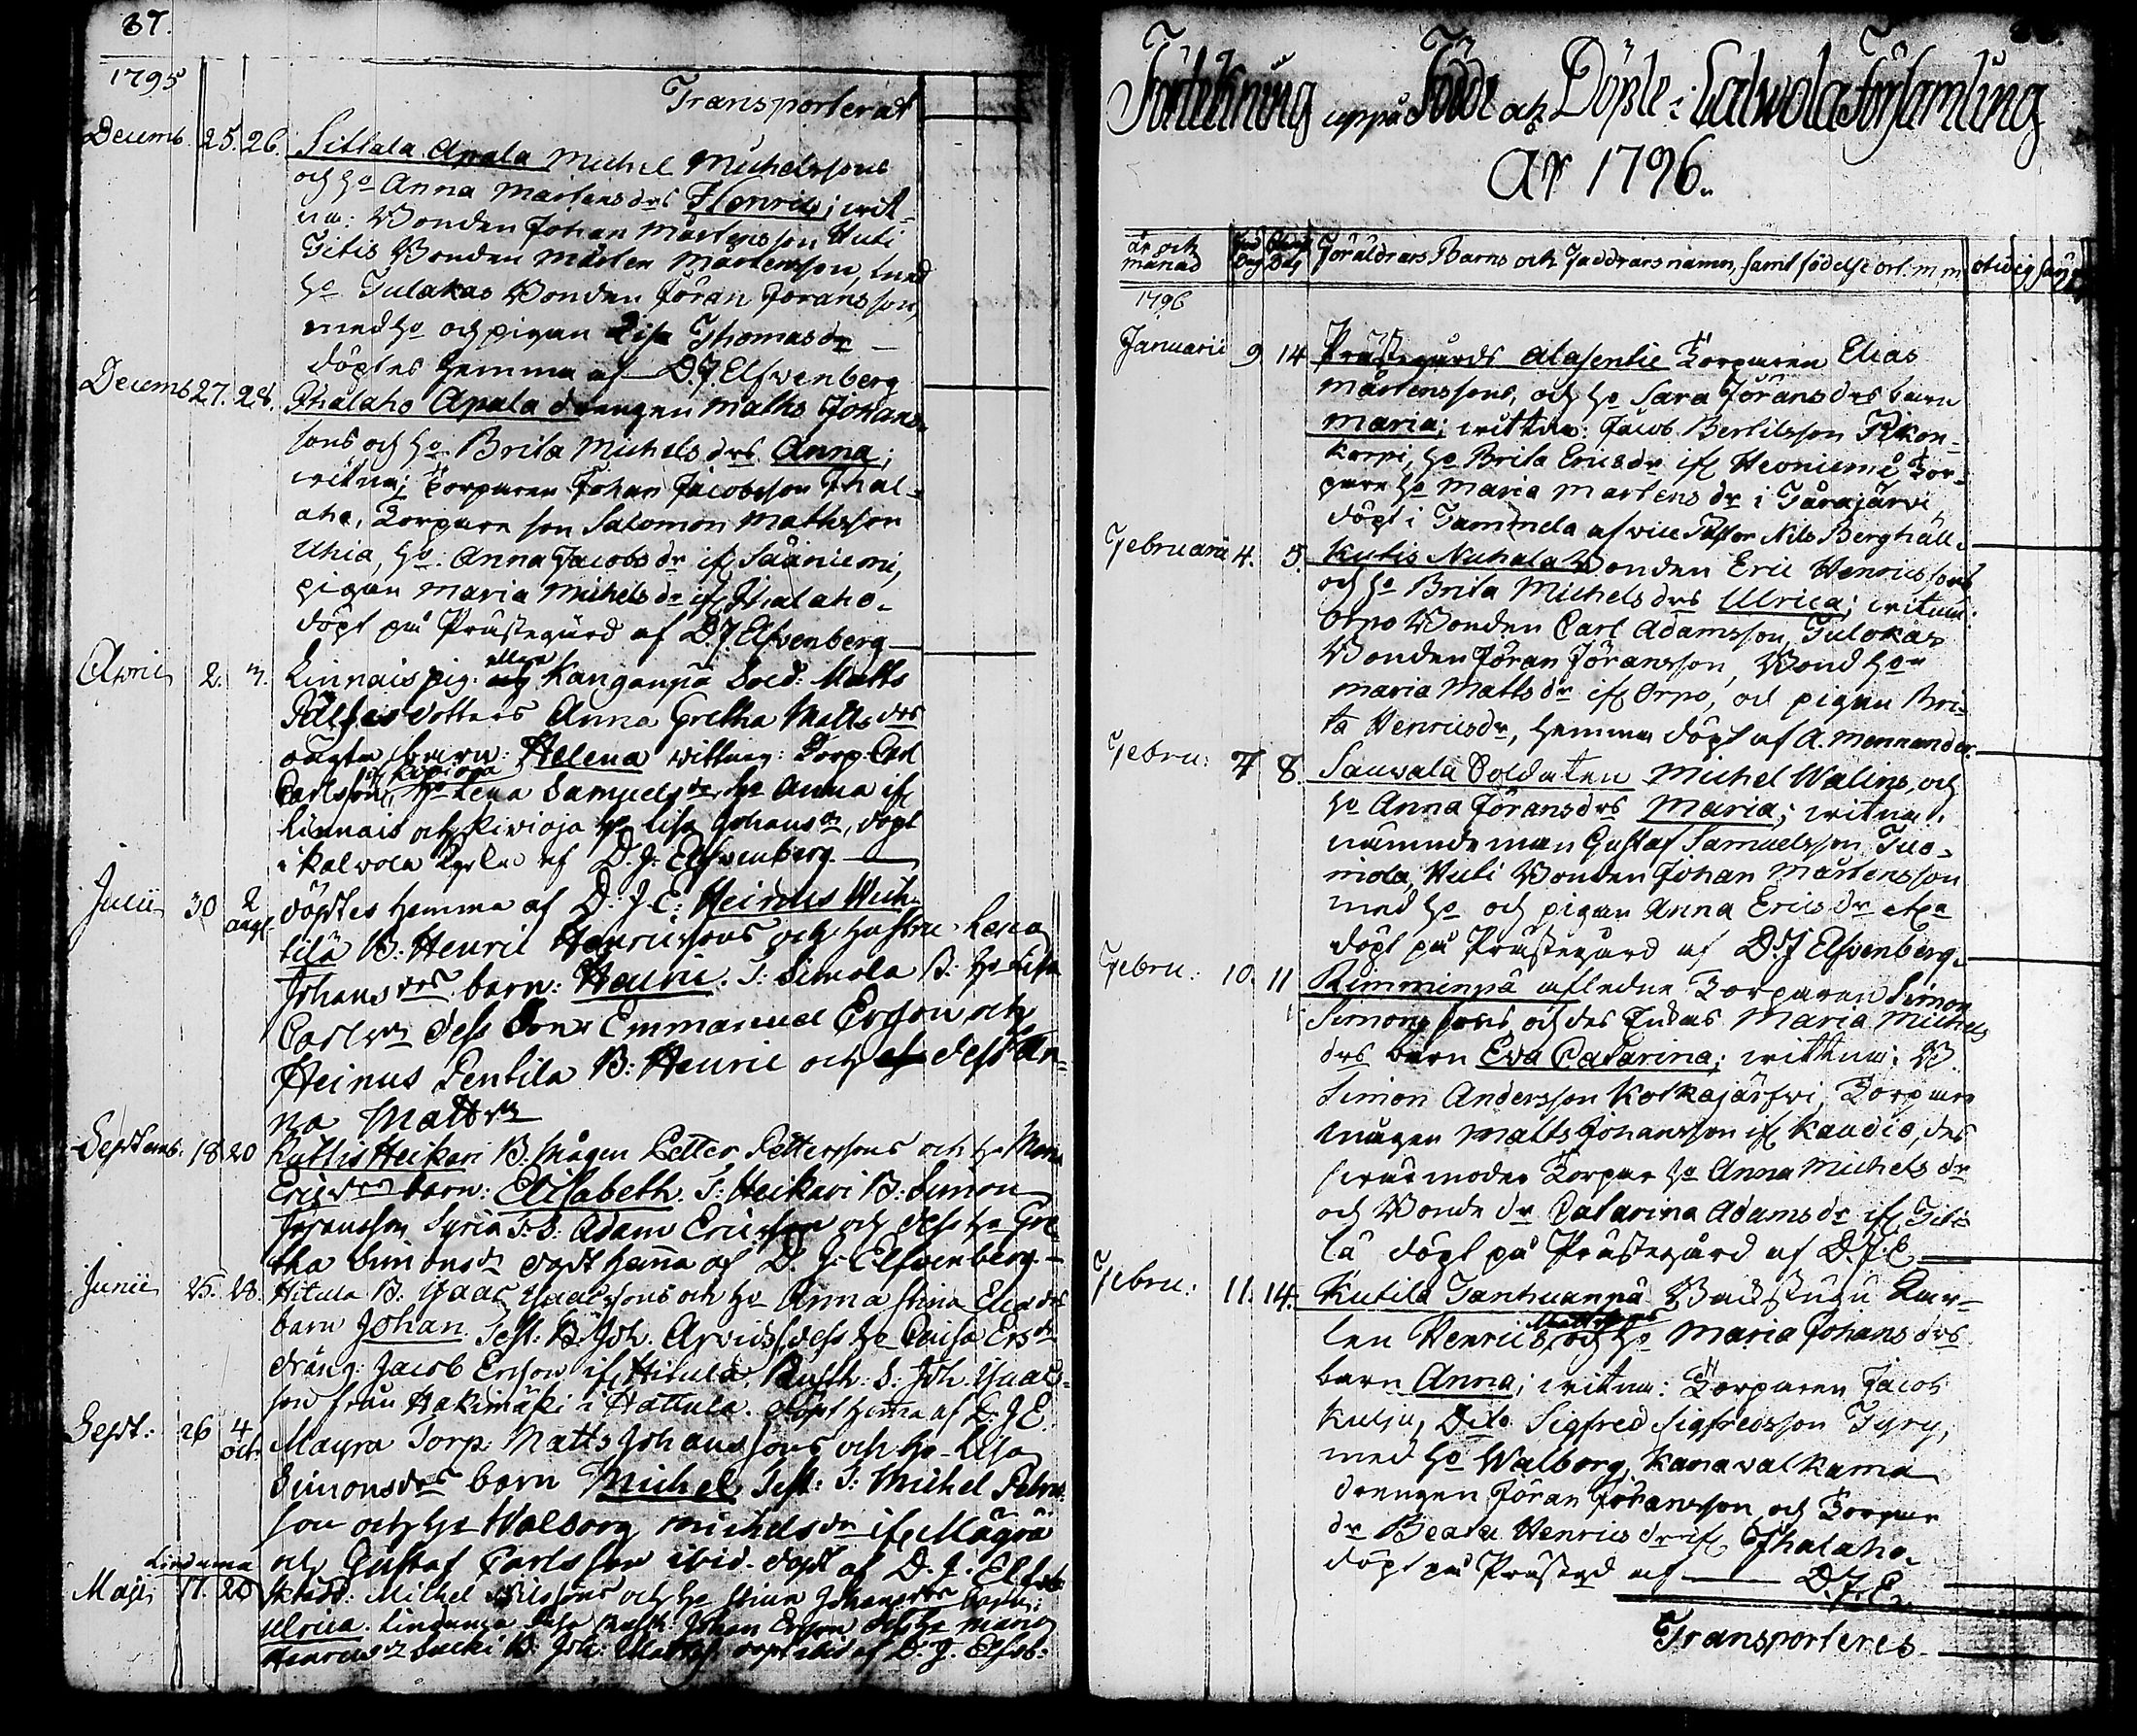 87.
1795
Transporterat
Decemb. 25. 26. Sittala Apala Michel Michelssons
och ho Anna Mårtens drs Henric; vit-
na: Bonden Johan Mårtensson Huti
Titis Bonden Mårten Mårtensson, med
ho Tulakas Bonden Jöran Jöransson,
med ho och pigan Lisa Thomas dr
döptes hemma af D.J Elfvenberg
Decemb 27. 28. Ihalaho Apala drengen Matts Johans-
sons och ho Brita Michels drs Anna;
vitna; Torparen Johan Jacobsson Ihal-
aho, Torpare son Salomon Mattsson
Uhia, ho: Anna Jacobs dr if Sääniemi,
pigan Maria Michels dr if Ihalaho.
döpt på Prästegård af D.J Elfvenberg
April 2. 3. Linnais pig. Kanganpä Sold: Matts
dotters Anna Gretha Matts drs
oägta barn: Helena vittney: Torp. Carl
Carlsson, if Kivioja ho Lena Samuels dr, ho Anna if
Linnais och Kivioja ho Lisa Johans dr, döpt
i Kalvola Kyrka af D.J. Elfvenberg
Julii 30 2 aug. döptes hemma af D.J.E. Heinus Wuh-
tilä B: Henric Henricssons och hustru Lena
Johans drs barn: Henric. T: Simola B. ho Lisa
Carls dr dess Son Emmanuel Ersson, och
Heinus Pentila B: Henric och dess An-
na Matts dr
Septemb. 18 20 Kuttis Heikari B. mågen Petter Petterssons och ho Maria
Erics drs barn: Elisabeth. T: Heikari B: Simon
Johansson, Syria T.S: Adam Ericsson och dess ho Gre-
tha Simons dr döpt hema af D.J. Elfvenberg.
Junii 25. 28. Hitula B. Isaac Isaacssons och ho Anna Stina Elia drs
barn Johan Test: B: Joh. Arvids, dess ho Caisa Ers dr
dräng: Jacob Ersson if Hitula, Rusth: S: Joh. Isaacs-
son från Hakimäki i Hattula. döpt hema af D.J E.
Sept: 26 4 oct. Mayra Torp: Matts Johanssons och ho Lisa
Simons drs barn Michel Test: T: Michel Peters-
son och ho Walborg Michels dr if Mägrä
och Gustaf Carlsson ibid. döpt af D.J. Elfvb.
Linduma
Maji 17. 20 Michel Nilssons och ho Stina Johans drs barn:
Ulrica. Lindunja Johan Ersson dess ho Maria
Henrics dr Sucki B. Joh: Mattss. döpt ibid af D.J. Elfvb:
Förtekning uppå Födde och Döpte i Calvola Församling
År 1796.
år och månad Föd. Dag Döpelse Dag Föräldrars Barns och Faddrars namn, samt födelse ort. m.m.
1796
Januarii 9 14 Prästegårds Alasentie Torparen Elias
Mårtenssons, och ho Sara Jörans drs barn
Maria; vittna: Jacob Bertilsson Rikon-
korpi, ho Brita Erics dr if Heoniemi Tor-
pare ho Maria Mårtens dr i Tårajärvi
döpt i Tammela af vice Pastor Nils Berghäll.
Februarii 4. 5. Kutis Nuhala Bonden Eric Henricssons
och ho Brita Michels drs Ulrica; vitna:
Orpo Bonden Carl Adamsson, Tulokas
Bonden Jöran Jöransson, Bond hon
Maria Matts dr if Orpo, och pigan Bri-
ta Henrics dr, hemma döpt af A. Mennander.
Febru: 7 8. Sauvala Soldaten Michel Walins, och
ho Anna Jörans drs Maria; vitna:
nämndeman Gustaf Samuelsson Tuo-
mola, Huti Bonden Johan Mårtensson
med ho och pigan Anna Erics dr
döpt på Prästegård af D.J Elfvenberg.
Febru.: 10. 11 Rimminpä afledne Torparen Simon
Simons sons, och des Enkas Maria Michels
drs barn Eva Catarina; vittna: B.
Simon Andersson Kotkajärfvi, Torpare
mågen Matts Johansson if Kandio, des
svärmoder Torpar ho Anna Michels dr
och Bonde dr Catarina Adams dr if Titi-
lä döpt på Prästegård af D.J.E
Febru.: 11. 14. Kutila Tanhuanpä Backstugu Kar-
len Henrics Mattssons och ho Maria Johans drs
barn Anna; vitna: Torparen Jacob
Kulju, Dito Sigfred Sigfredsson Tyry,
med ho Walborg, Kanavalkama
drengen Jöran Johansson, och Torpar
dr Beata Henrics dr if Ihalaho.
döpt på Prästegd af D.J.E.
Transporteres